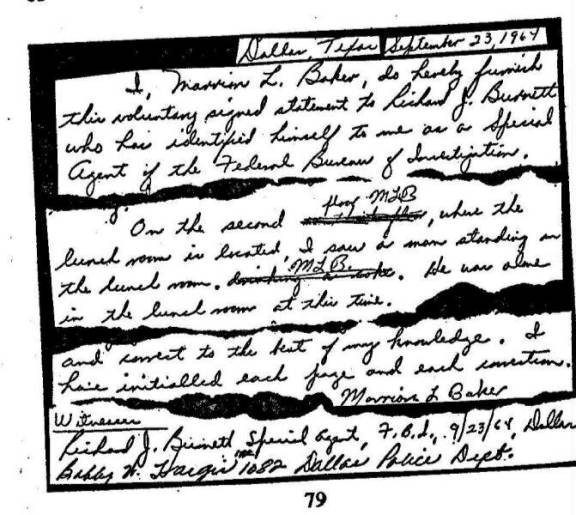 Dallas, Texas September 23, 1964
I, Marrion L. Baker, do hereby furnish
this voluntary signed statement to Richard J. Burnett
who has identified himself to me as a Special
Agent of the Federal Bureau of Investigation.
floor MLB
On the second, where the
lunch room is located, I saw a man standing in
MLB.
the lunch room. drinking a coke. He was alone
in the lunch room at this time.
and correct to the best of my knowledge. I
have initialled each page and each correction.
Marrion L Baker
Witnesses
Richard J. Burnett Special Agent, F.B.I., 9/23/64, Dallas
Bobby W. Hargis 1082 Dallas Police Dept.
79